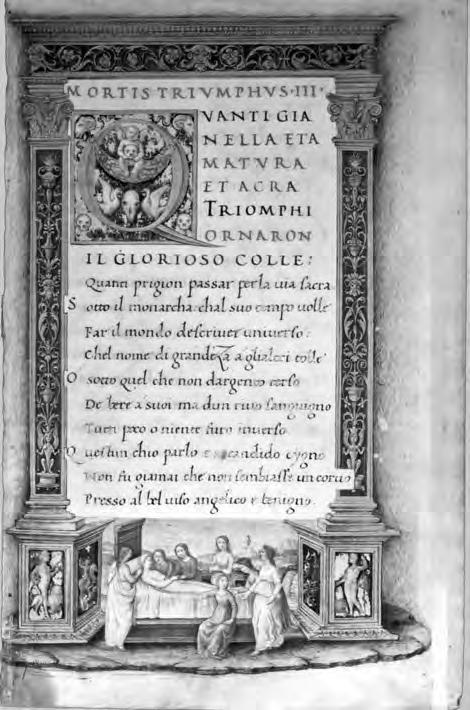 MORTIS TRIVMPHVS·III·
QVANTI GIA
NELLA ETA
MATVRA
ET ACRA
TRIOMPHI
ORNARON
IL GLORIOSO COLLE:
Quanti prigion passar per la uia sacra
Sotto il monarcha chal suo tempo uolle
Far il mondo descriuer uniuerso:
Chel nome di grandeza aglialtri tolle
O sotto quel che non dargento terso
De bere a suoi ma dun riuo sanguigno
Tutti poco o niente furo inuerso
Questun chio parlo e candido cygno
Non fu giamai che non sembiasse un coruo
Presso al bel uiso angelico e benigno.